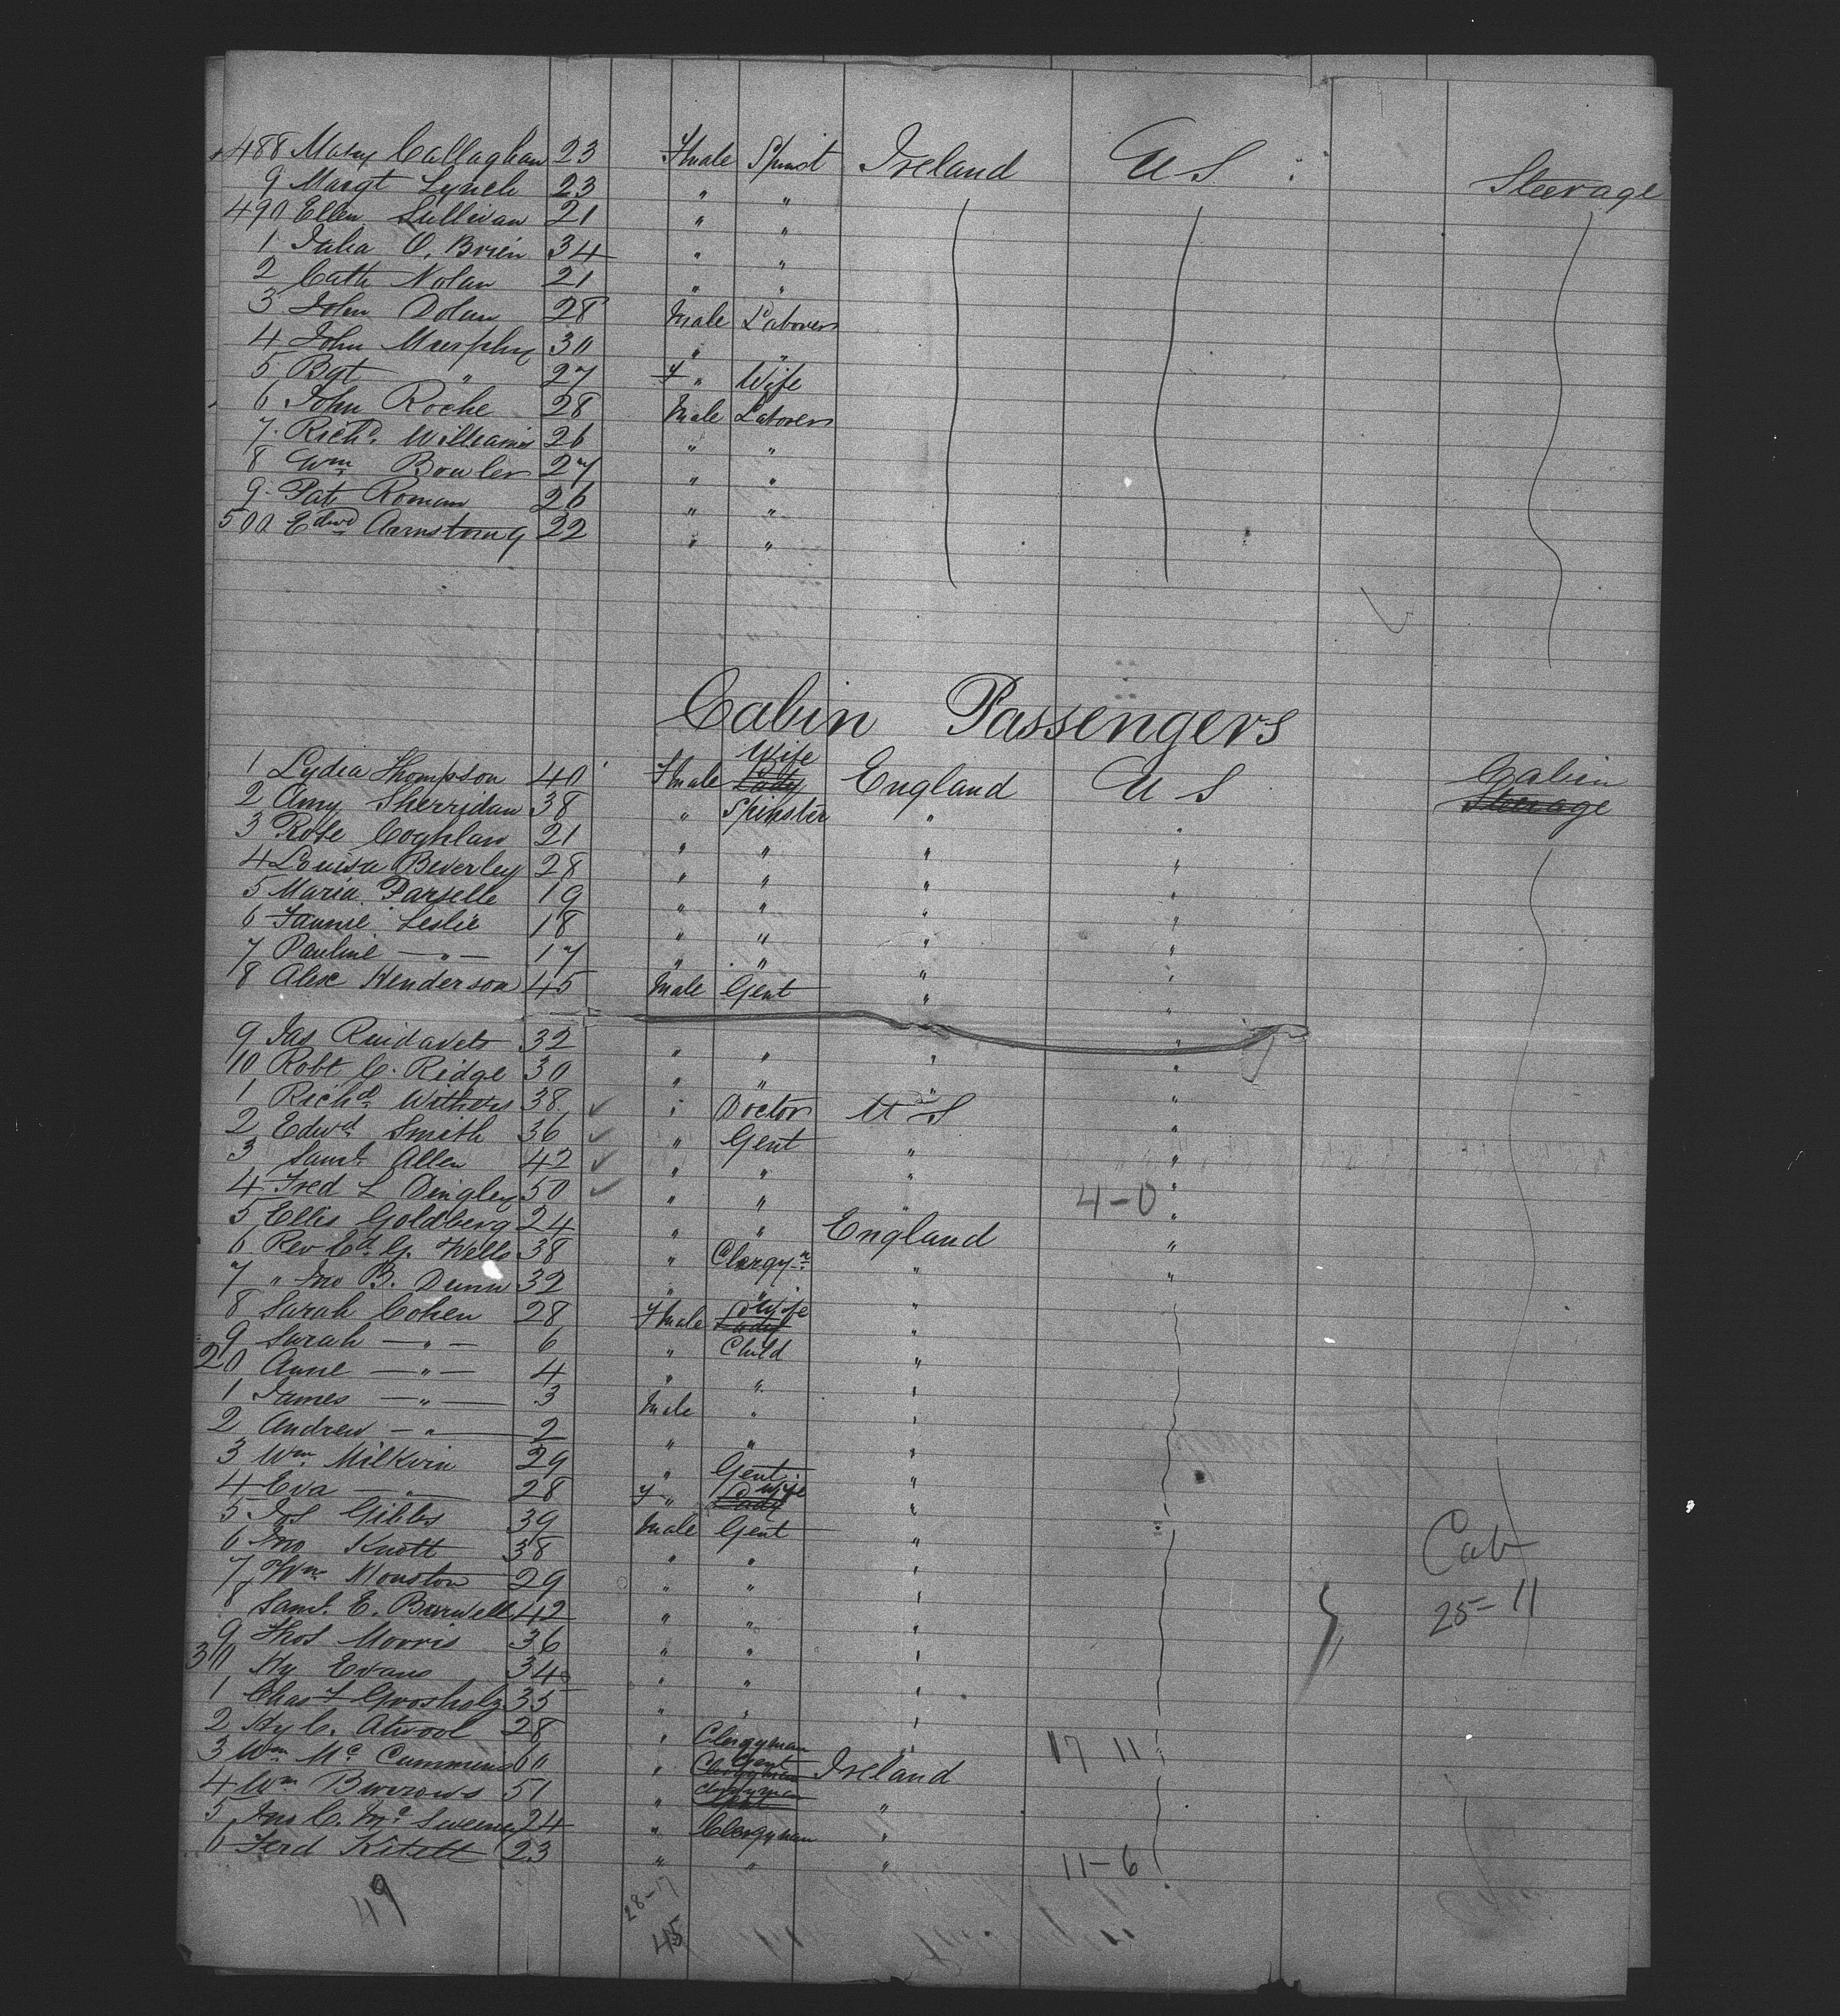 488 Mary Callaghan 23 Fmale Spinst Ireland U S Steerage
9 Margt Lynch 23 " "
490 Ellen Sullivan 21 " "
1 Julia O. Brien 34 " "
2 Cath Nolan 21 " "
3 John Dolan 28 Male Laborer
4 John Murphy 30 " "
5 Bgt " 27 F " Wife
6 John Roche 28 Male Laborer
7 Richd. Williams 26 " "
8 Wm Bowler 27 " "
9 Pat Ronan 26 " "
500 Edwd Armstorng 22 " "
Cabin Passengers
Wife
1 Lydia Thompson 40 Fmale Lady England U S Cabin
2 Amy Sherridan 38 " Spinster " " Steerage
3 Rose Coghlan 21 " " " "
4 Louisa Beverley 28 " " " "
5 Maria Parselle 19 " " " "
6 Fannie Leslie 18 " " " "
7 Pauline — " — 17 " " " "
8 Alex Henderson 45 Male Gent " "
9 Jas Ruidavets 32 " " " "
10 Robt C. Ridge 30 " " " "
1 Richd. Withers 38 ✓ " Doctor U S "
2 Edwd Smith 36 ✓ " Gent " "
3 Saml. Allen 42 ✓ " " " "
4 Fred L Dingley 50 ✓ " " " 4-0 "
5 Ellis Goldberg 24 " " England "
6 Rev Ed. G. Wells 38 " Clergyn " "
7 " Jno B. Dunn 32 " " "
8 Sarah Cohen 28 Fmale Lady Wife "
9 Sarah — " — 6 " Child "
20 Anne — " — 4 " " "
1 James — " — 3 Male " "
2 Andrew — " — 2 " " "
3 Wm. Milkvin 29 " Gent. "
4 Eva — " — 28 F " Lady Wife "
5 Jos Gibbs 39 Male Gent "
6 Jno Knott 38 " " " Cab
7 Wm. Houston 29 " " "
8 Saml. E. Burwell 42 " " " 25-11
9 Thos Morris 36 " " "
30 Hy Evans 34 " " "
1 Chas F Grosholz 35 " " "
2 Hy C. Atwool 28 " " 17 11
Clergyman
3 Wm Mc Cummins 60 " Gent Clergyman Ireland
4 Wm Burrows 51 " Clergyman "
5 Jno C. Mc Sweeney 24 " Clergyman "
6 Ferd Kitett 23 " " " 11-6
49 28-17
45